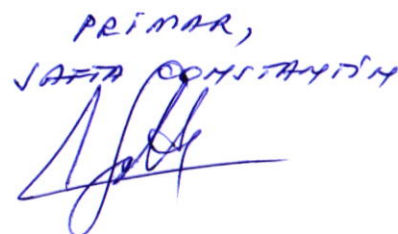 PRIMAR,
SAFTA CONSTANTIN